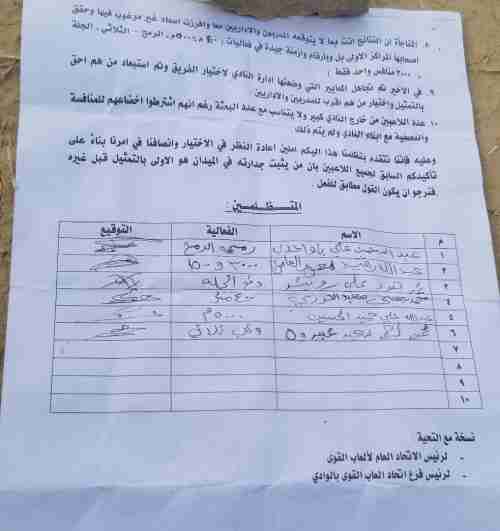 ٨. المفاجأة ان النتائج اتت بما لا يتوقعه المدربين والاداريين معا وافرزت اسماء غير مرغوب فيها وحقق
اصحابها المراكز الاولى بل وبارقام وازمنة جيدة في فعاليات : ٤٠٠م، ٥٠٠٠م، الرمح - الثلاثي، الجلة
، ٢٠٠٠ منافس واحد فقط )
٩. في الاخير تم تجاهل المعايير التي وضعتها ادارة النادي لاختيار الفريق وتم استبعاد من هم احق
بالتمثيل واختيار من هم اقرب للمدربين والاداريين
١٠. عدد اللاعبين من خارج النادي كبير ولا يتناسب مع عدد البعثة رغم انهم اشترطوا اخضاعهم للمنافسة
والتصفية مع ابناء النادي ولم يتم ذلك
وعليه فإننا نتقدم بتظلمنا هذا اليكم املين اعادة النظر في الاختيار وانصافنا في امرنا بناءً على
تأكيدكم السابق لجميع اللاعبين بان من يثبت جدارته في الميدان هو الاولى بالتمثيل قبل غيره
فنرجو ان يكون القول مطابق للفعل .
المتظلمين :
م الاسم الفعالية التوقيع
١ عبد الرحمن علي رمي الرمح
٢ عبدالله
٣ علي دفع الجلة
٤ محمد ٤٠٠ متر
٥ عبدالله علي ٥٠٠٠م
٦ وثب ثلاثي
٧
٨
٩
١٠
نسخة مع التحية
- لرئيس الاتحاد العام لألعاب القوى
- لرئيس فرع اتحاد العاب القوى بالوادي